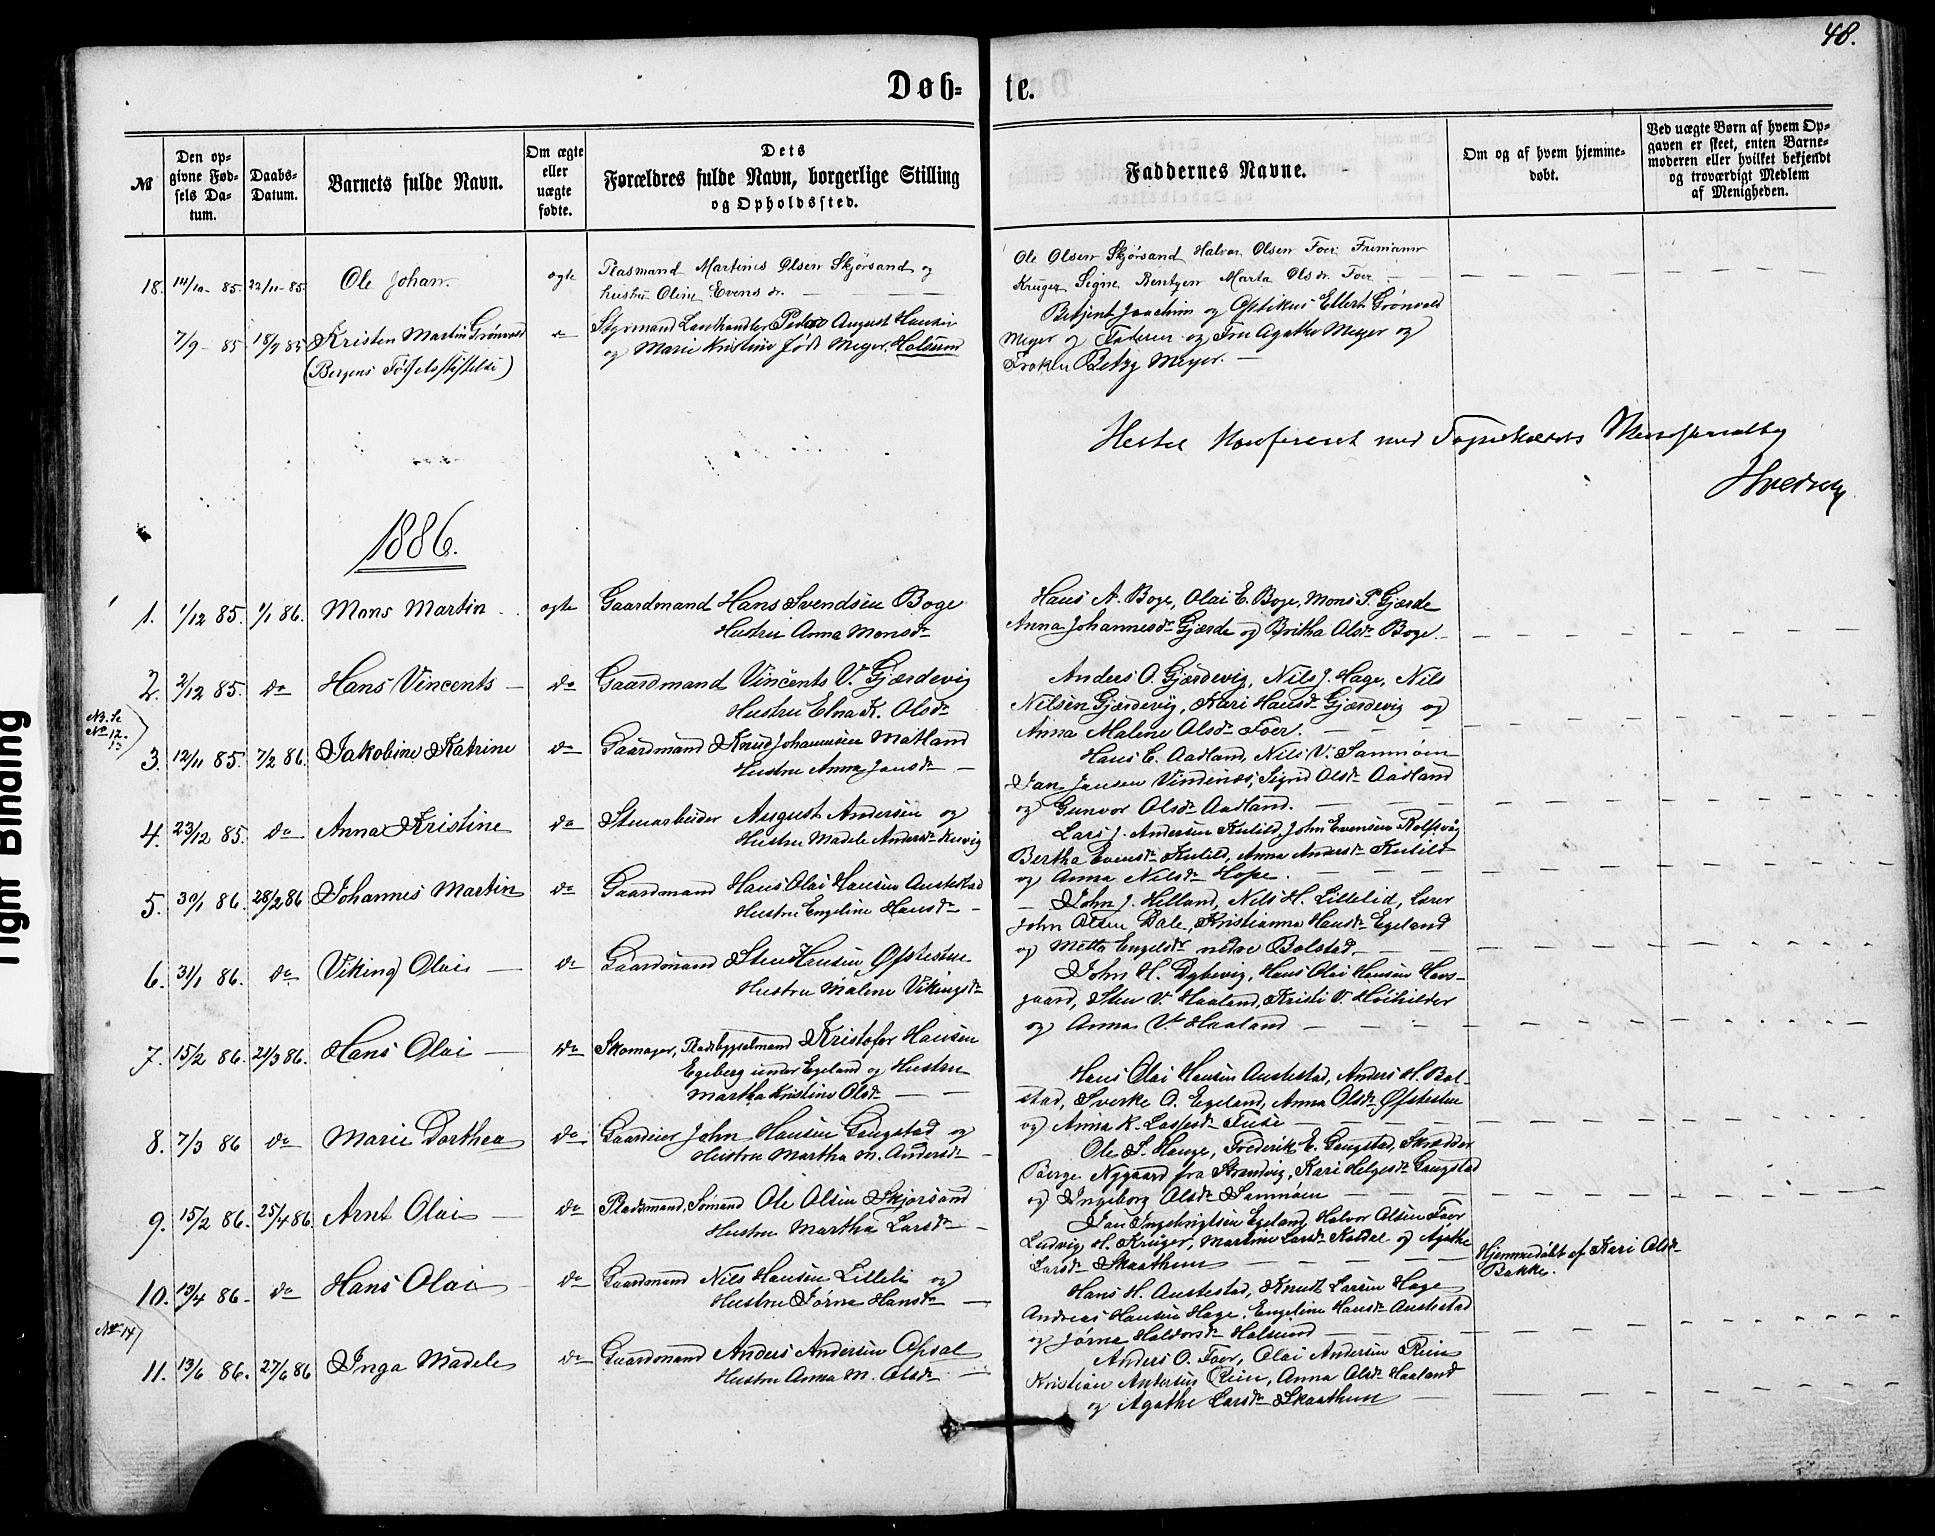 48.
Døb- te.
№
Den op-
givne Fød-
sels Da-
tum.
Daabs-
Datum.
Barnets fulde Navn.
Om ægte
eller
uægte
fødte.
Dets
Forældres fulde Navn, borgerlige Stilling
og Opholdssted.
Faddernes Navne.
Om og af hvem hjemme-
døbt.
Ved uægte Børn af hvem Op-
gaven er skeet, enten Barne-
moderen eller hvilket bekjendt
og troværdigt Medlem
af Menigheden.
18. 14/10 85. 22/11 85. Ole Johan ægte Plasmand Martines Olsen Skjørsand og
Hustru Oline Evensdr.
Ole Olsen Skjørsand Halvor Olsen Foer Fremann
Kruger Signe Bentsen Marta Olsdr Foer
7/9 85 18/9 85 Kristen Martin Grønvold
(Bergens Fødselsstiftelse)
Styrmand Landhandler Peder August Hansen
og Marie Kristine født Meyer, Holsund
Betjent Joachim og Optikus Ellert Grønvold
Meyer og Faderen og Fru Agathe Meyer og
Frøken Betzy Meyer.
Hester konfereret med
1886.
1. 1/12 85. 1/1 86. Mons Martin ægte Gaardmand Hans Svendsen Boge
Hustru Anna Monsdr
Hans A. Boge, Olai E. Boge, Mons P. Gjærde
Anna Johannesdr Gjærde og Britha Olsdr Boge.
2. 2/12 85. do Hans Vincents do Gaardmand Vincents V. Gjærdevig
Hustru Elna K. Olsdr
Anders O. Gjærdevig, Nils J. Hage, Nils
Nilsen Gjærdevig, Kari Hansdr Gjærdevig og
Anna Malene Olsdr Foer.
N.B. Se
No 12.
13
3. 12/11 85. 7/2 86. Jakobine Katrine do Gaardmand Knud Johannesen Matland
Hustru Anna Jansdr
Hans E. Aadland, Nils V. Samnøen
Jan Jansen Vindenæs, Sigrid Olsdr Aadland
og Gunvor Olsdr Aadland.
4. 23/12 85. do Anna Kristine do Stenarbeider August Andersen og
Hustru Madele Andersdr
Lars J. Andersen Kulild, John Evensen Rolfsvåg
Bertha Evensdr Kulild, Anna Andersdr Kulild
og Anna Nilsdr Hope.
5. 30/1 86. 28/2 86 Johannes Martin do Gaardmand Hans Olai Hansen Austestad
Hustru Engeline Hansdr
John J. Helland, Nils H. Lillelid, Lærer
John Olsen Dale, Kristianna Hansdr Egeland
og Metta Engelsdr nedre Bolstad
6. 31/1 86. do Viking Olai do Gaardmand Sten Hansen Øfstestue
Hustru Malene Vikingsdr
John H. Dybevig, Hans Olai Hansen Havs-
gaard, Sten V. Haaland, Kristi V. Høihilder
og Anna V. Haaland
7. 15/2 86. 21/3 86. Hans Olai do Skomager, Pladsbygselmand Kristofer Hansen
Egeberg under Egeland og Hustru
Martha Kristine Olsdr
Hans Olai Hansen Austestad, Anders H. Bol-
stad, Sverke O. Egeland, Anna Olsdr Øfstestue
og Anna K. Lassesdr Fuse
8. 7/3 86 do Marie Dorthea do Gaardeier John Hansen Gaugstad og
Hustru Martha M. Andersdr
Ole S. Hauge, Frederik E. Gaugstad, Skrædder
Børge Nygaard fra Strandvig, Kari Helgesdr Gaugstad
og Ingeborg Olsdr Samnøen
9. 15/2 86. 25/4 86. Arnt Olai do Pladsmand, Sømand Ole Olsen Skjørsand
Hustru Martha Larsdr
Jan Ingebrigtsen Egeland, Halvor Olsen Foer
Ludvig H. Krüger, Martine Larsdr Koldal og Agathe
Larsdr Skaathun
10. 13/4 86. do Hans Olai do Gaardmand Nils Hansen Lilleli og
Hustru Jørna Hansdr
Hans H. Austestad, Knut Larsen Hage
Andreas Hansen Hage, Engeline Hansdr Austestad
og Jørna Haldorsdr Holsund
Hjemmedøbt af Kari Olsdr
Bakke.
No 14
11. 13/6 86. 27/6 86 Inga Madele do Gaardmand Anders Andersen Opsal
Hustru Anna M. Olsdr
Anders O. Foer, Olai Andersen Rein
Kristian Andersen Rein, Anna Olsdr Haaland
og Agathe Larsdr Skaathun
Tight Binding